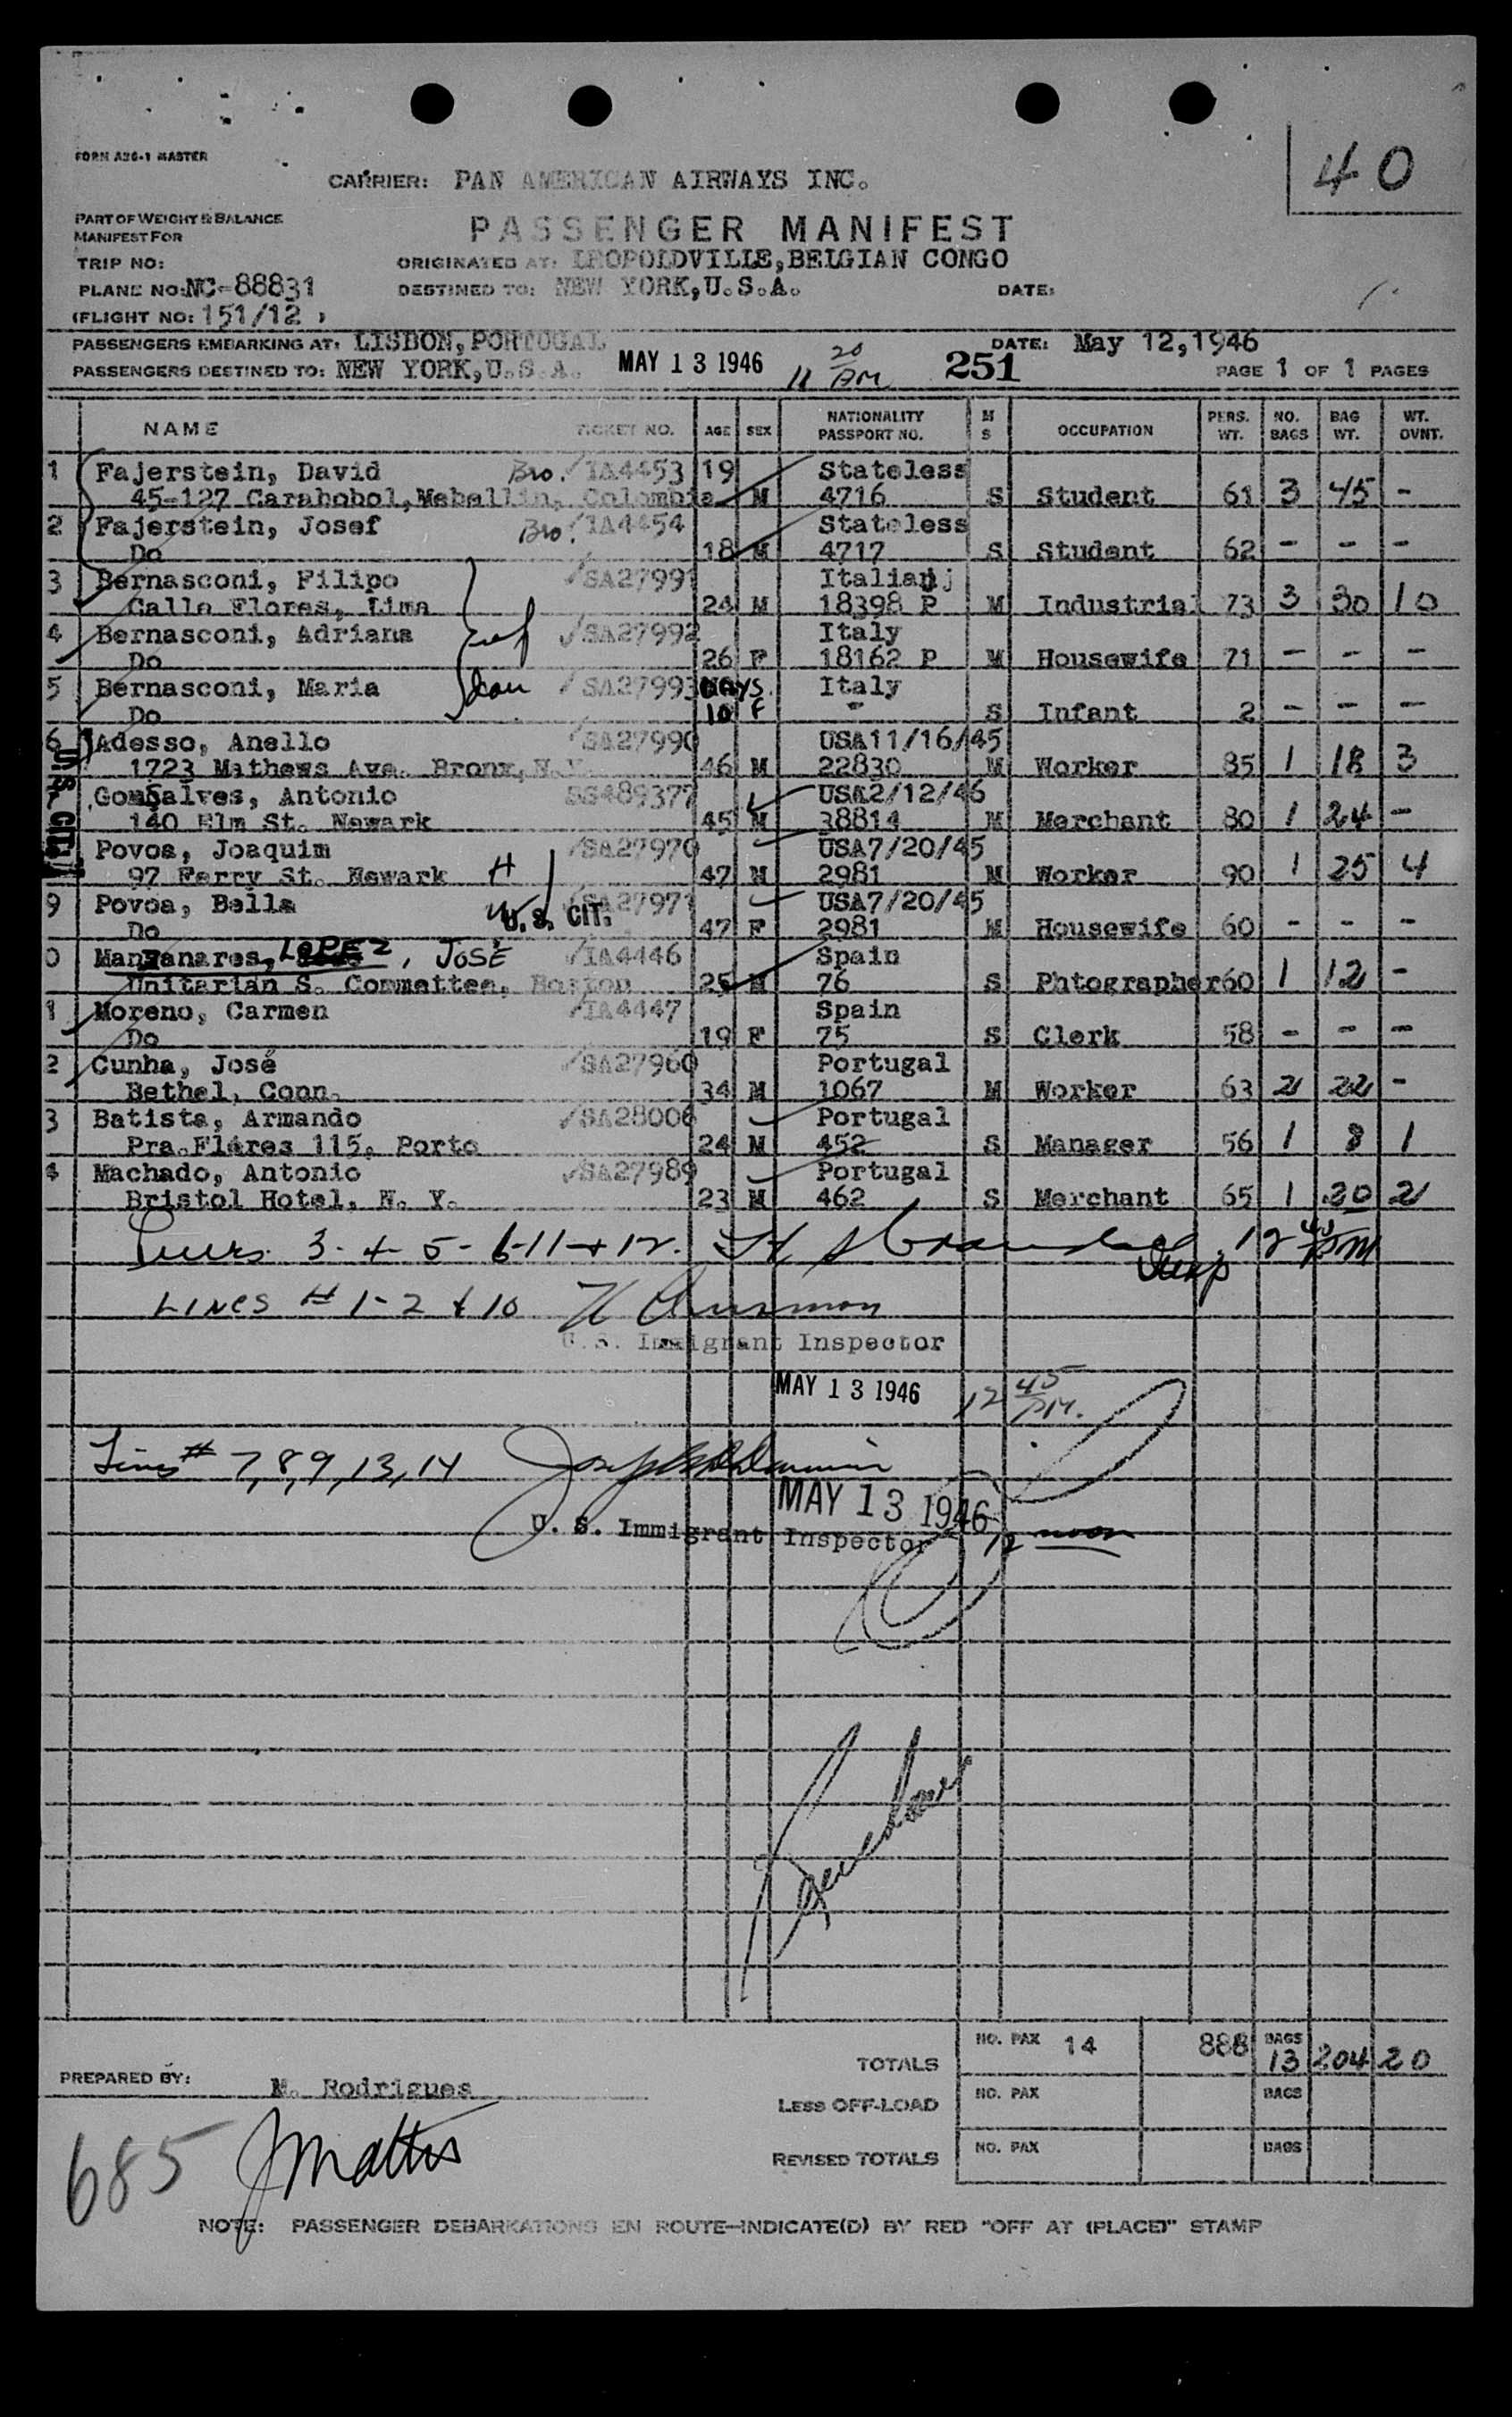 FORM A26-1 MASTER
40
CARRIER: PAN AMERICAN AIRWAYS INC.
PART OF WEIGHT & BALANCE
MANIFEST FOR
PASSENGER MANIFEST
TRIP NO:
ORIGINATED AT: LEOPOLDVILLE, BELGIAN CONGO
PLANE NO: NC-88831
DESTINED TO: NEW YORK, U.S.A.
DATE:
(FLIGHT NO: 151/12 )
PASSENGERS EMBARKING AT: LISBON, PORTUGAL
DATE: May 12, 1946
PASSENGERS DESTINED TO: NEW YORK, U.S.A.
MAY 13 1946 11 20 AM 251
PAGE 1 OF 1 PAGES
NAME TICKET NO. AGE SEX NATIONALITY PASSPORT NO. M S OCCUPATION PERS. WT. NO. BAGS BAG WT. WT. OVNT.
1 Fajerstein, David Bro. IA4453 19 Stateless
45-127 Carabobol, Mebellin, Colombia M 4716 S Student 61 3 45 -
2 Fajerstein, Josef Bro. IA4454 Stateless
Do 18 M 4717 S Student 62 - - -
3 Bernasconi, Filipo SA27991 Italian
Calle Flores, Lima 24 M 18398 P M Industrial 73 3 30 10
4 Bernasconi, Adriana SA27992 Italy
Do 26 F 18162 P M Housewife 71 - - -
5 Bernasconi, Maria SA27993 DAYS Italy
Do 10 F - S Infant 2 - - -
6 Adesso, Anello SA27990 USA11/16/45
1723 Mathews Ave. Bronx, N.Y. 46 M 22830 M Worker 85 1 18 3
U.S. CIT.
Gonsalves, Antonio SS489377 USA2/12/46
140 Elm St. Newark 45 M 38814 M Merchant 80 1 24 -
Povoa, Joaquim SA27970 USA7/20/45
97 Ferry St. Newark H 47 M 2981 M Worker 90 1 25 4
9 Povoa, Bella W SA27971 USA7/20/45
Do U.S. CIT. 47 F 2981 M Housewife 60 - - -
0 Manzanares, LOPEZ, JOSÉ IA4446 Spain
Unitarian S. Committee, Boston 25 M 76 S Phtographer 60 1 12 -
1 Moreno, Carmen IA4447 Spain
Do 19 F 75 S Clerk 58 - - -
2 Cunha, José SA27960 Portugal
Bethel, Conn. 34 M 1067 M Worker 63 2 22 -
3 Batista, Armando SA28006 Portugal
Pra.Flares 115, Porto 24 M 452 S Manager 56 1 8 1
4 Machado, Antonio SA27989 Portugal
Bristol Hotel, N. Y. 23 M 462 S Merchant 65 1 20 2
3-4-5-6-11-+12. Insp
LINES # 1-2 & 10
U.S. Immigrant Inspector
MAY 13 1946 12 45 PM.
Lines # 7,8,9,13,14
MAY 13 1946
U. S. Immigrant Inspector 12 noon
TOTALS NO. PAX 14 888 BAGS 13 204 20
PREPARED BY: M. Rodrigues
LESS OFF-LOAD NO. PAX BAGS
REVISED TOTALS NO. PAX BAGS
685 J Mattis
NOTE: PASSENGER DEBARKATIONS EN ROUTE-INDICATE(D) BY RED "OFF AT (PLACE)" STAMP